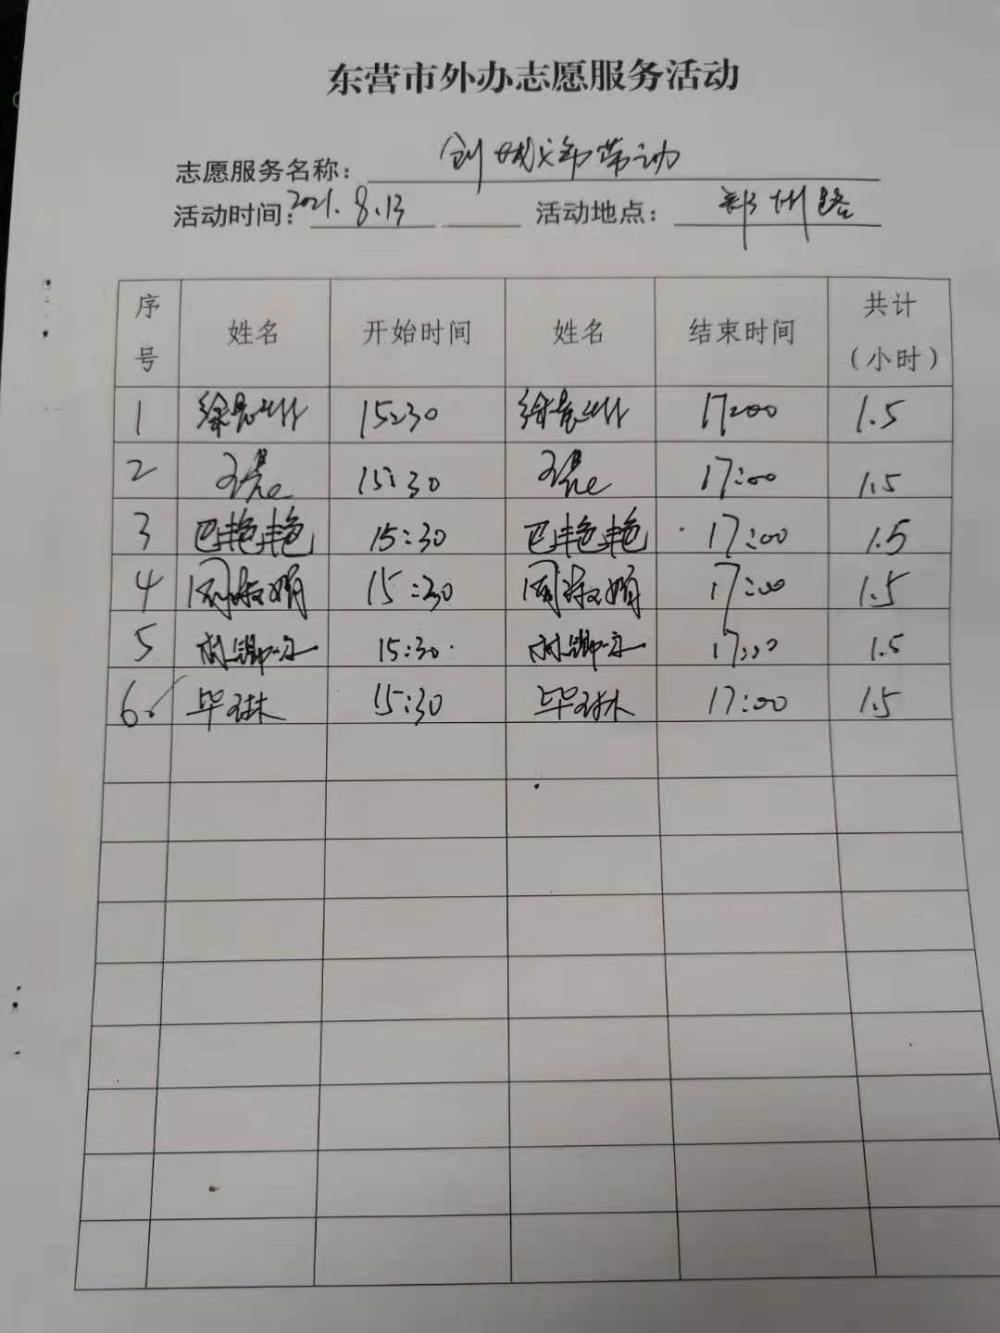 东营市外办志愿服务活动
志愿服务名称：创城
活动时间：2021.8.13 活动地点：郑州路
序号 姓名 开始时间 姓名 结束时间 共计（小时）
1 15:30 17:00 1.5
2 15:30 17:00 1.5
3 巴艳艳 15:30 巴艳艳 17:00 1.5
4 周淑娟 15:30 周淑娟 17:00 1.5
5 15:30 17:00 1.5
6 毕琳 15:30 毕琳 17:00 1.5